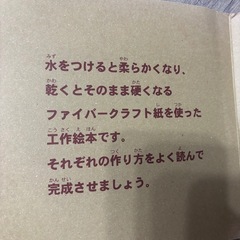 水をつけると柔らかくなり、
乾くとそのまま硬くなる
ファイバークラフト紙を使った
工作絵本です。
それぞれの作り方をよく読んで
完成させましょう。